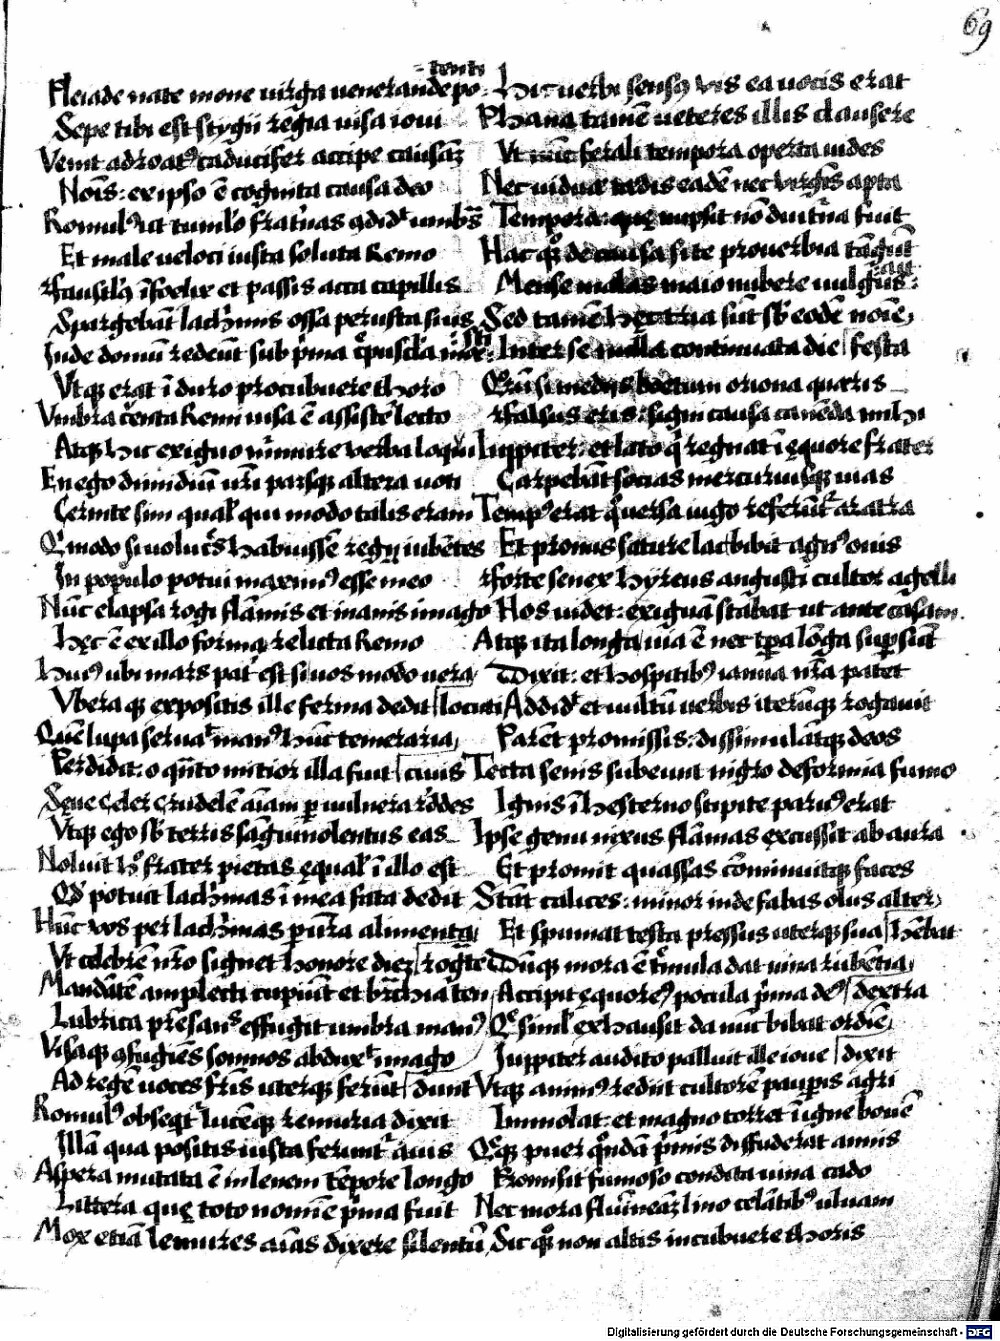 69
tenti
Pleiade nate mone uirga uenerande po
Sepe tibi est stygii regia uisa ioui
Venit adrotatꝰ caducifer accipe causaʒ
Nois: ex ipso ē cognita causa deo
Romulꝰ ut tumlo fratnas ꝯdidt umbs̄
Et male ueloci iusta soluta Remo
Faustulꝰ īfoelix et passis acca capillis
Spargebāt lachmis ossa perusta suis
Inde domū redeūt sub pma crepuscla moe: sti
Vtqꝫ erat ī duro procubuere thoro
Vmbra centa Remi uisa ē assiste lecto
Atqꝫ hic exiguo murmure uerba loqui
En ego dimidiū uri parsqꝫ altera uoti
Cernite sim qual qui modo talis eram
Q modo si uolucs habuissē regni iubētes
In populo potui maximꝰ esse meo
Nūc elapsa rogi flāmis et inanis imago
Hęc ē ex illo forma relicta Remo
Heu ubi mars pat est si uos modo uera
Vberaqꝫ expositis ille ferina dedit locuti
Quē lupa seruat manꝰ hūc temeraria
Perdidit: o qnto mitior illa fuit ciuis
Sęue Celer crudelē aīam p uulnera rddes
Vtqꝫ ego sb terris sāguinolentus eas
Noluit h frater pietas ęqual ī illo est
Qd potuit lachmas ī mea fata dedit
Hūc uos per lachmas p ura alimenta
Vt celebrē nro signet honore diē rogte
Mandātē amplecti cupiūt et brchia ten
Lubrica prēsanˢ effugit umbra manꝰ
Visaqꝫ ꝯfugiēs somnos abduxt imago
Ad regē uoces fris uterqꝫ feriūt dunt
Romulꝰ obseqt lucēqꝫ remuria dixit
Illā qua positis iusta feruntr auis
Aspera mutata ē in lenem tēpore longo
Littera quę toto nomiē pma fuit
Mox etiā lemures aīas dixere silentū
Hic uerbi sensꝰ uis ea uocis erat
Phana tamē ueteres illis clausere
Vt nūc ferali tempora operta uides
Nec uiduę tędis eadē nec uirgīs apta
Tempora: quę nupsit nō diutna fuit
Hac qꝫ de causa si te prouerbia tāgūt
Mense malas maio nubere uulgus: ait
Sed tamē hęc tria sūt sb eodē noīe
Inter se nulla continuata die festa
Qrū si mediis boetum oriona quæris
Falsus eris: signi causa canēda mihi
Iuppiter: et lato q regnat ī ęquore frater
Carpebāt socias mercuriusqꝫ uias
Tempꝰ erat q uersa iugo referūtr aratra
Et pronus saturę lac bibit agnꝰ ouis
Forte senex hyreus angusti cultor agelli
Hos uidet: exiguā stabat ut ante casam.
Atqꝫ ita longa uia ē nec tpa lōga supsūt
Dixit: et hospitibꝰ ianua nra patet
Addidt et uultū uerbis iterūqꝫ rogauit
Parēt promissis: dissimulātqꝫ deos
Tecta senis subeunt nigro deformia fumo
Ignis ī hesterno stipite paruꝰ erat
Ipse genu nixus flāmas ęxcussit ab aura
Et promit quassas cōminuitqꝫ faces
Stāt calices: minor inde fabas olus alter
Et spumat testa pressus uterqꝫ sua hēbat
Dūqꝫ mora ē tmula dat uina rubētia
Accipit ęquoreꝰ pocula pma deꝰ dextra
Qe simul ęxhausit da nūc bibat ordiē
Iuppiter audito palluit ille ioue dixit
Vtqꝫ animꝰ rediit cultorē paupis agri
Immolat: et magno torret ī igne bouē
Qęqꝫ puer qndā pmis diffuderat annis
Promsit fumoso condita uina cado
Nec mora flumineaʒ lino celātibꝰ uluam
Sic qꝫ non altis incubuere thoris
Digitalisierung gefördert durch die Deutsche Forschungsgemeinschaft - DFG